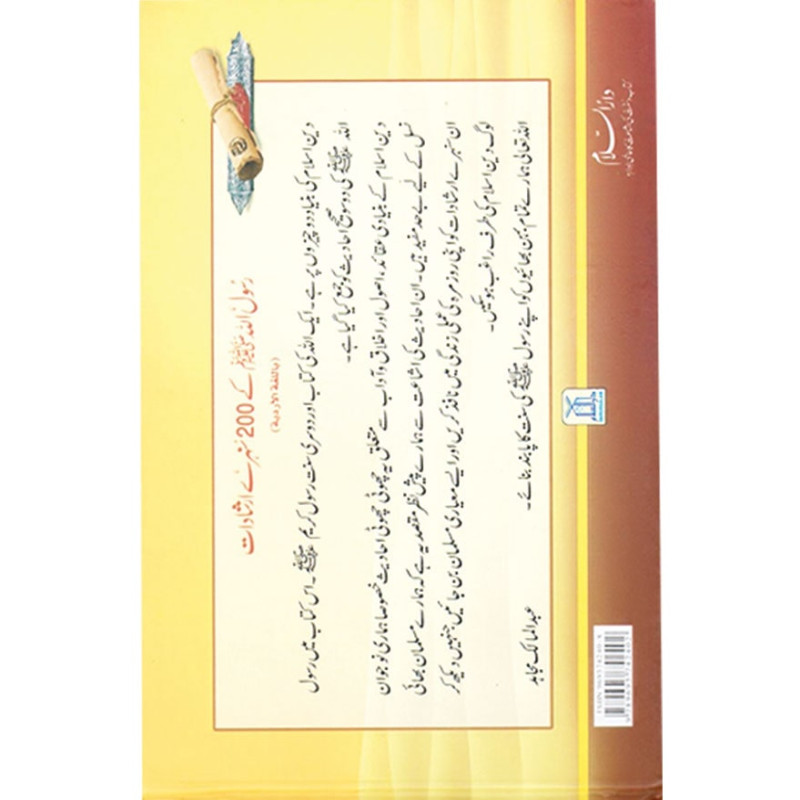 رسول اللہ ﷺ کے 200 سنہرے ارشادات
(باللغة الاردية)
دین اسلام کی بنیاد دو چیزوں پر ہے۔ ایک اللہ کی کتاب اور دوسری سنت رسول کریم ﷺ۔ اس کتاب میں رسول
اللہ ﷺ کی دو سو صحیح احادیث کو جمع کیا گیا ہے۔
دین اسلام کے بنیادی عقائد، اصول اور اخلاق و آداب سے متعلق یہ چھوٹی چھوٹی احادیث خصوصاً ہماری نوجوان
نسل کے لیے بے حد مفید ہیں۔ ان احادیث کی اشاعت سے ہمارے پیش نظر مقصد یہ ہے کہ ہمارے مسلمان بھائی
ان سنہرے ارشادات کو اپنی روزمرہ کی عملی زندگی میں نافذ کریں اور ایسے معیاری مسلمان بن جائیں جنہیں دیکھ کر
لوگ دین اسلام کی طرف راغب ہو سکیں۔
اللہ تعالیٰ ہمارے تمام بہن بھائیوں کو اپنے رسول ﷺ کی سنت کا پابند بنائے۔
عبدالمالک مجاہد
دارالسلام